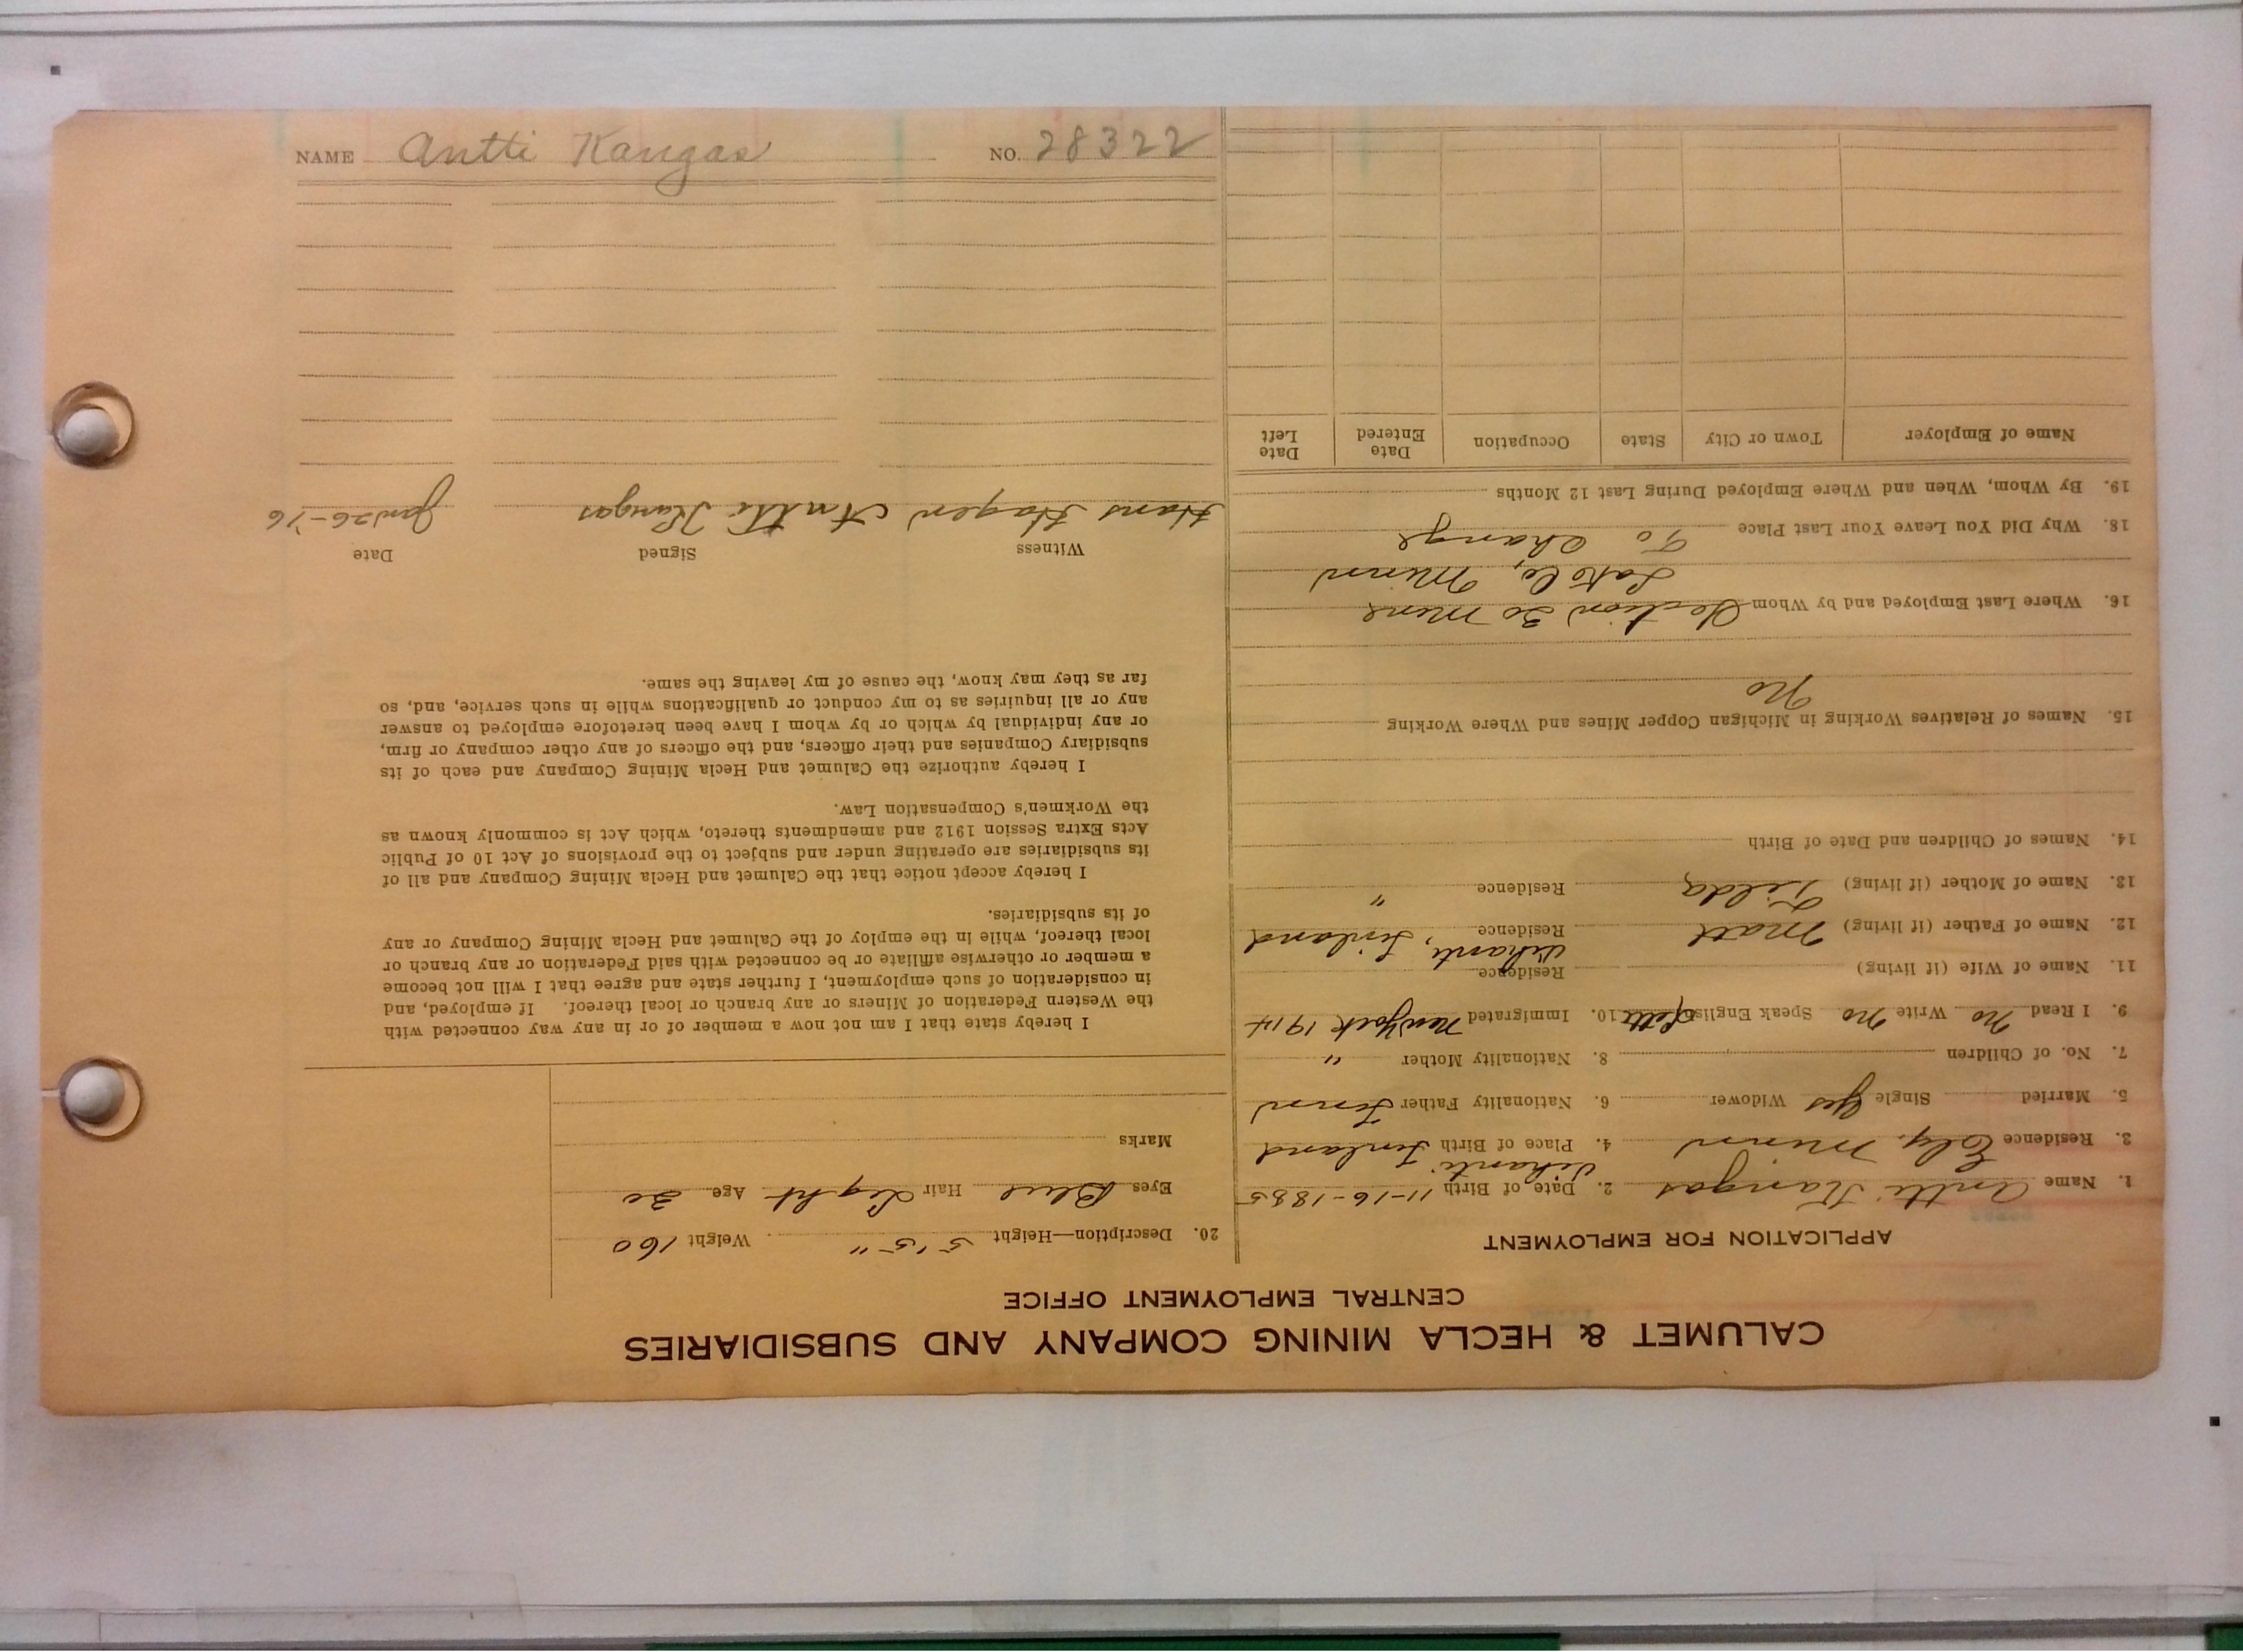 CALUMET & HECLA MINING COMPANY AND SUBSIDIARIES
CENTRAL EMPLOYMENT OFFICE
APPLICATION FOR EMPLOYMENT
1. Name Antti Kangas 2. Date of Birth 11-16-1885
Vihanti
3. Residence Ely, Minn 4. Place of Birth Finland
5. Married Single Yes Widower 6. Nationality Father Finn
7. No. of Children 8. Nationality Mother "
9. I Read No Write No Speak English Little 10. Immigrated New York 1914
11. Name of Wife (if living) Residence
Vihanti, Finland
12. Name of Father (if living) Matt Residence
13. Name of Mother (if living) Tilda Residence "
14. Names of Children and Date of Birth
15. Names of Relatives Working in Michigan Copper Mines and Where Working
No
16. Where Last Employed and by Whom Section 30 Mine
Minn
18. Why Did You Leave Your Last Place To Change
19. By Whom, When and Where Employed During Last 12 Months
Name of Employer Town or City State Occupation Date Entered Date Left
20. Description—Height 5'5" Weight 160
Eyes Blue Hair Light Age 30
Marks
I hereby state that I am not now a member of or in any way connected with
the Western Federation of Miners or any branch or local thereof. If employed, and
in consideration of such employment, I further state and agree that I will not become
a member or otherwise affiliate or be connected with said Federation or any branch or
local thereof, while in the employ of the Calumet and Hecla Mining Company or any
of its subsidiaries.
I hereby accept notice that the Calumet and Hecla Mining Company and all of
its subsidiaries are operating under and subject to the provisions of Act 10 of Public
Acts Extra Session 1912 and amendments thereto, which Act is commonly known as
the Workmen's Compensation Law.
I hereby authorize the Calumet and Hecla Mining Company and each of its
subsidiary Companies and their officers, and the officers of any other company or firm,
or any individual by which or by whom I have been heretofore employed to answer
any or all inquiries as to my conduct or qualifications while in such service, and, so
far as they may know, the cause of my leaving the same.
Witness Signed Date
Hans Hagen Antti Kangas Jan 26-16
NAME Antti Kangas NO. 28322